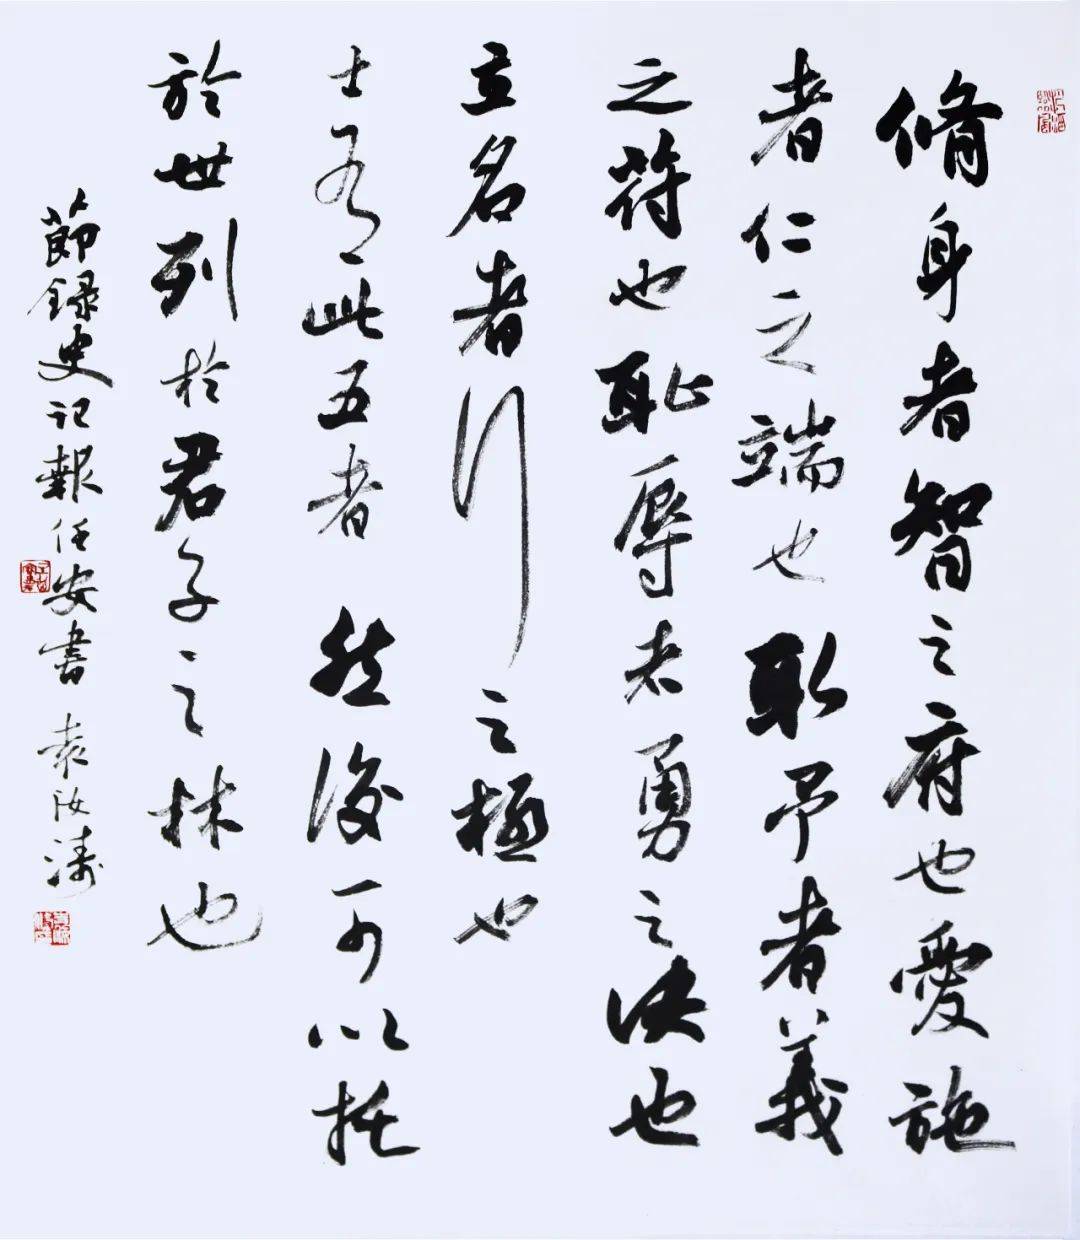 脩身者智之府也愛施
者仁之端也取予者義
之符也耻辱者勇之決也
立名者行之極也
士有此五者然後可以托
於世列於君子之林也
節録史記報任安書 袁汝濤